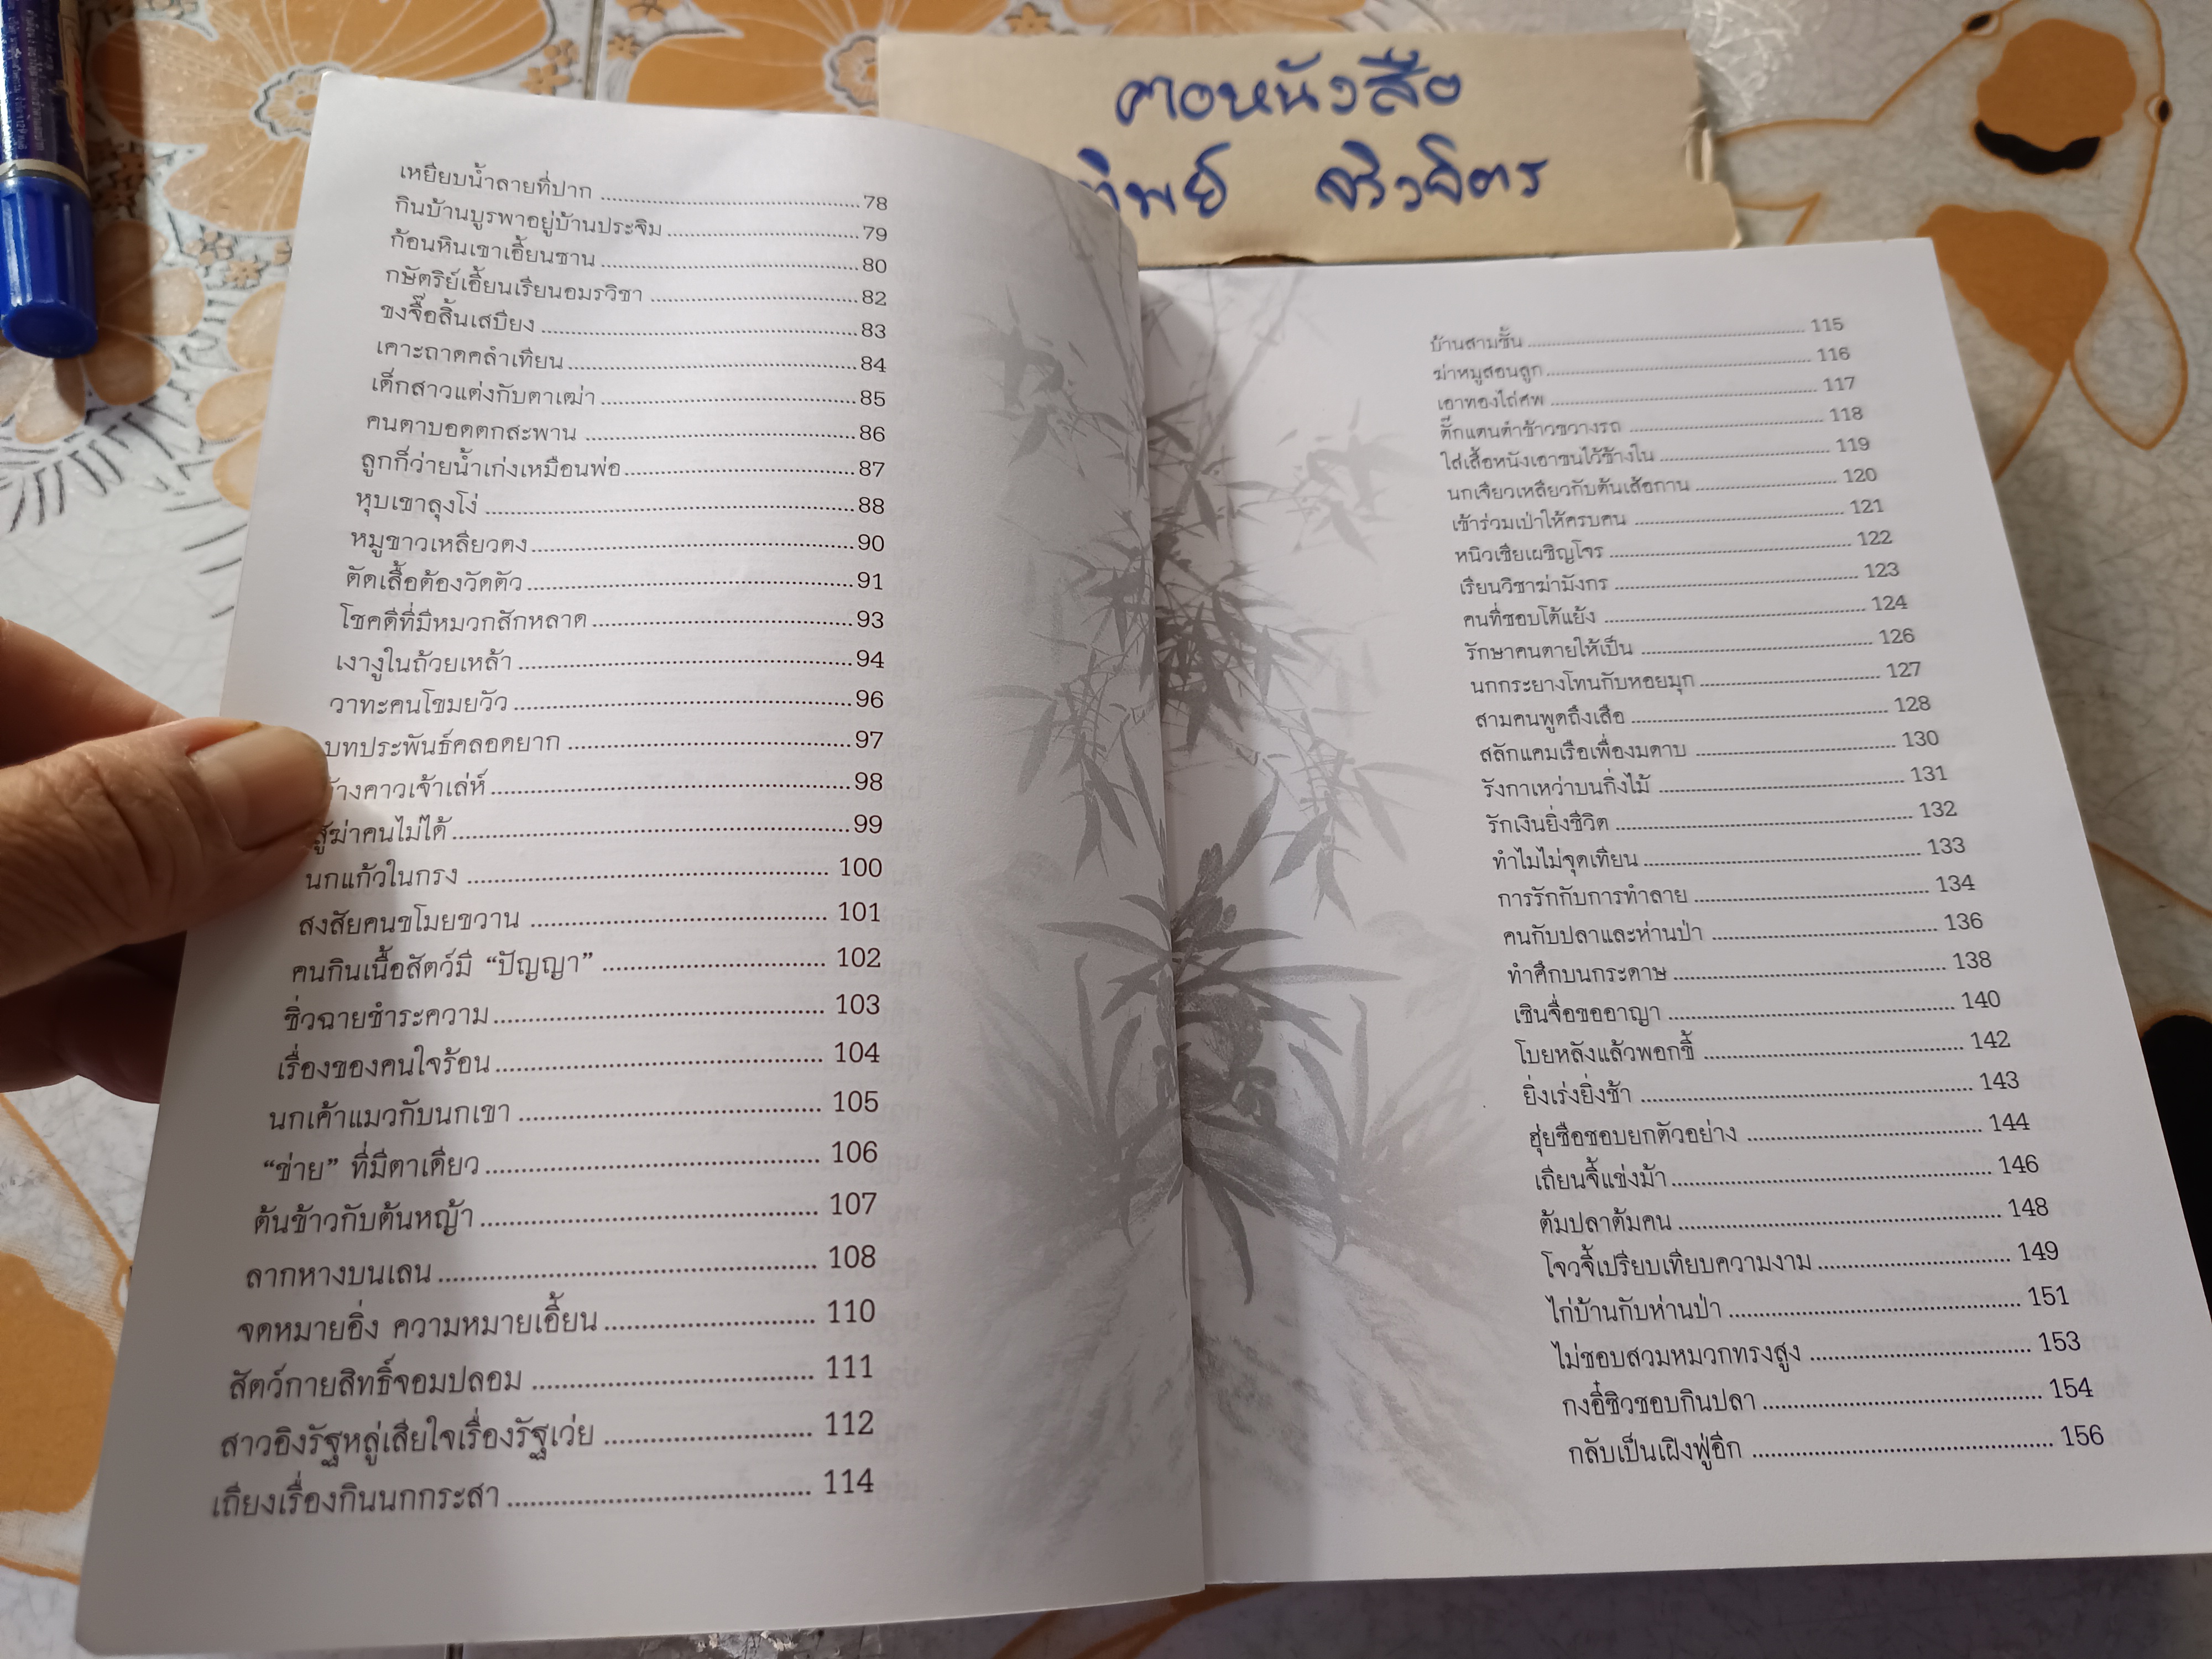 คอหนังสือ
ทิพย์ จริงจิตร
เหยียบน้ำลายที่ปาก 78
กินบ้านบูรพาอยู่บ้านประจิม 79
ก้อนหินเขาเอี้ยนซาน 80
กษัตริย์เอี้ยนเรียนอมรวิชา 82
ขงจื๊อสิ้นเสบียง 83
เคาะถาดคลำเทียน 84
เด็กสาวแต่งกับตาเฒ่า 85
คนตาบอดตกสะพาน 86
ลูกก็ว่ายน้ำเก่งเหมือนพ่อ 87
หุบเขาลุงโง่ 88
หมูขาวเหลียวตง 90
ตัดเสื้อต้องวัดตัว 91
โชคดีที่มีหมวกสักหลาด 93
เงางูในถ้วยเหล้า 94
วาทะคนโขมยวัว 96
บทประพันธ์คลอดยาก 97
้างคาวเจ้าเล่ห์ 98
สู้ฆ่าคนไม่ได้ 99
นกแก้วในกรง 100
สงสัยคนขโมยขวาน 101
คนกินเนื้อสัตว์มี “ปัญญา” 102
ซิ่วฉายชำระความ 103
เรื่องของคนใจร้อน 104
นกเค้าแมวกับนกเขา 105
“ข่าย” ที่มีตาเดียว 106
ต้นข้าวกับต้นหญ้า 107
ลากหางบนเลน 108
จดหมายอิ่ง ความหมายเอี้ยน 110
สัตว์กายสิทธิ์จอมปลอม 111
สาวอิงรัฐหลู่เสียใจเรื่องรัฐเว่ย 112
เถียงเรื่องกินนกกระสา 114
บ้านสามชั้น 115
ฆ่าหมูสอนลูก 116
เอาทองไถ่ศพ 117
ตั๊กแตนตำข้าวขวางรถ 118
ใส่เสื้อหนังเอาขนไว้ข้างใน 119
นกเจียวเหลียวกับต้นเลือกาน 120
เข้าร่วมเป่าให้ครบคน 121
หนิวเชียเผชิญโจร 122
เรียนวิชาฆ่ามังกร 123
คนที่ชอบโต้แย้ง 124
รักษาคนตายให้เป็น 126
นกกระยางโทนกับหอยมุก 127
สามคนพูดถึงเสือ 128
สลักแคมเรือเพื่องมดาบ 130
รังกาเหว่าบนกิ่งไม้ 131
รักเงินยิ่งชีวิต 132
ทำไมไม่จุดเทียน 133
การรักกับการทำลาย 134
คนกับปลาและห่านป่า 136
ทำศึกบนกระดาษ 138
เซินจื่อขออาญา 140
โบยหลังแล้วพอกขี้ 142
ยิ่งเร่งยิ่งช้า 143
ฮุ่ยซือชอบยกตัวอย่าง 144
เถียนจี้แข่งม้า 146
ต้มปลาต้มคน 148
โจวจี้เปรียบเทียบความงาม 149
ไก่บ้านกับห่านป่า 151
ไม่ชอบสวมหมวกทรงสูง 153
กงอี๋ซิวชอบกินปลา 154
กลับเป็นเฝิงฟู่อีก 156